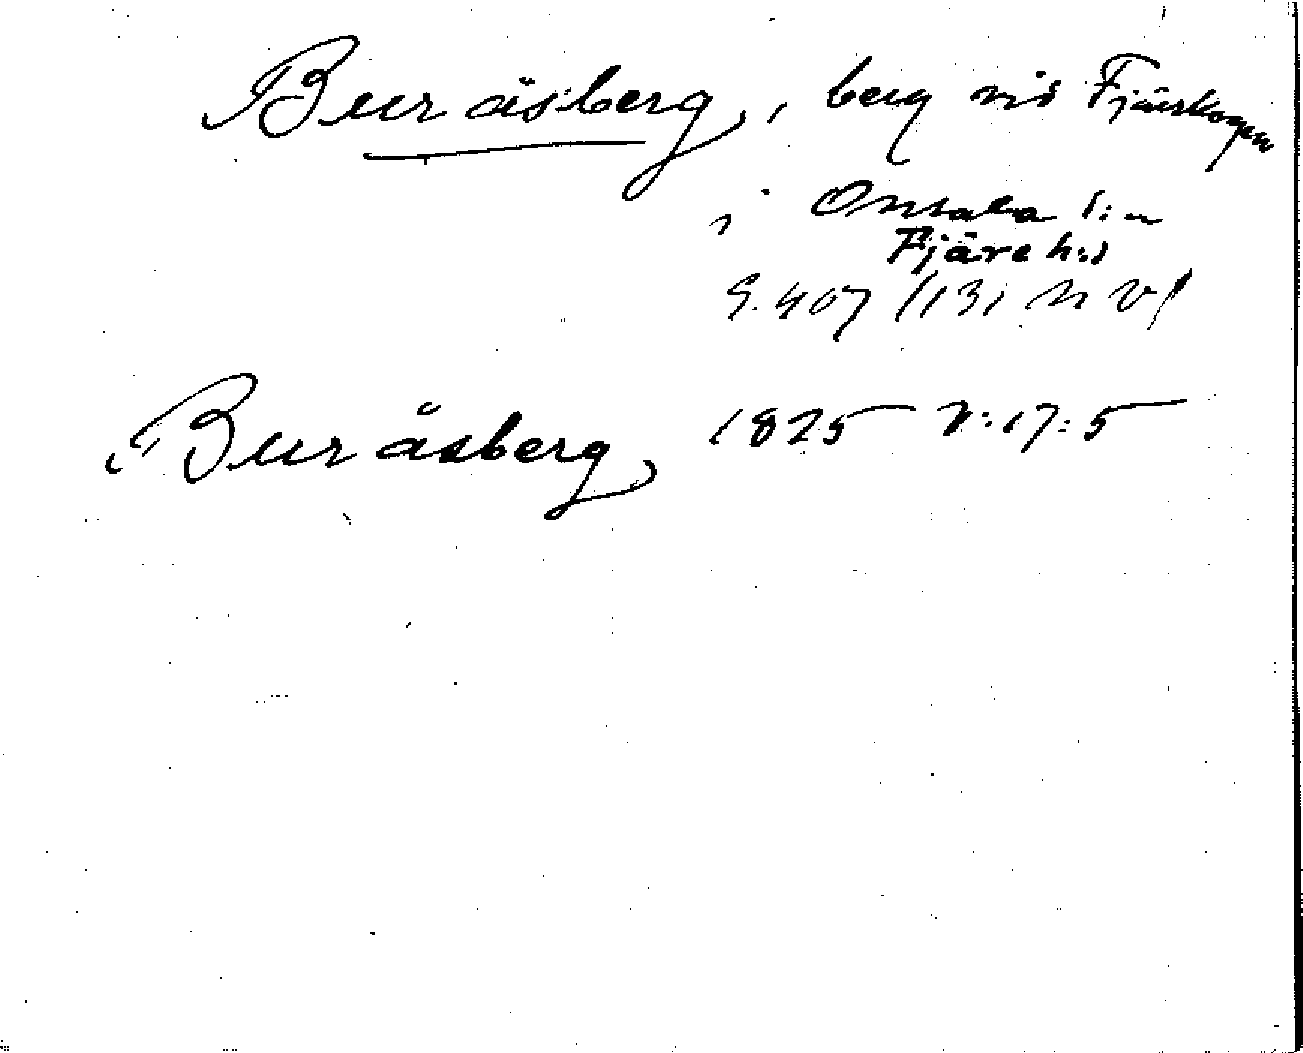 Buråsberg, berg vid Fjärskogen
i Onsala s:n
Fjäre h:d
S. 407 /131 N V/
Buråsberg 1825 V:17:5